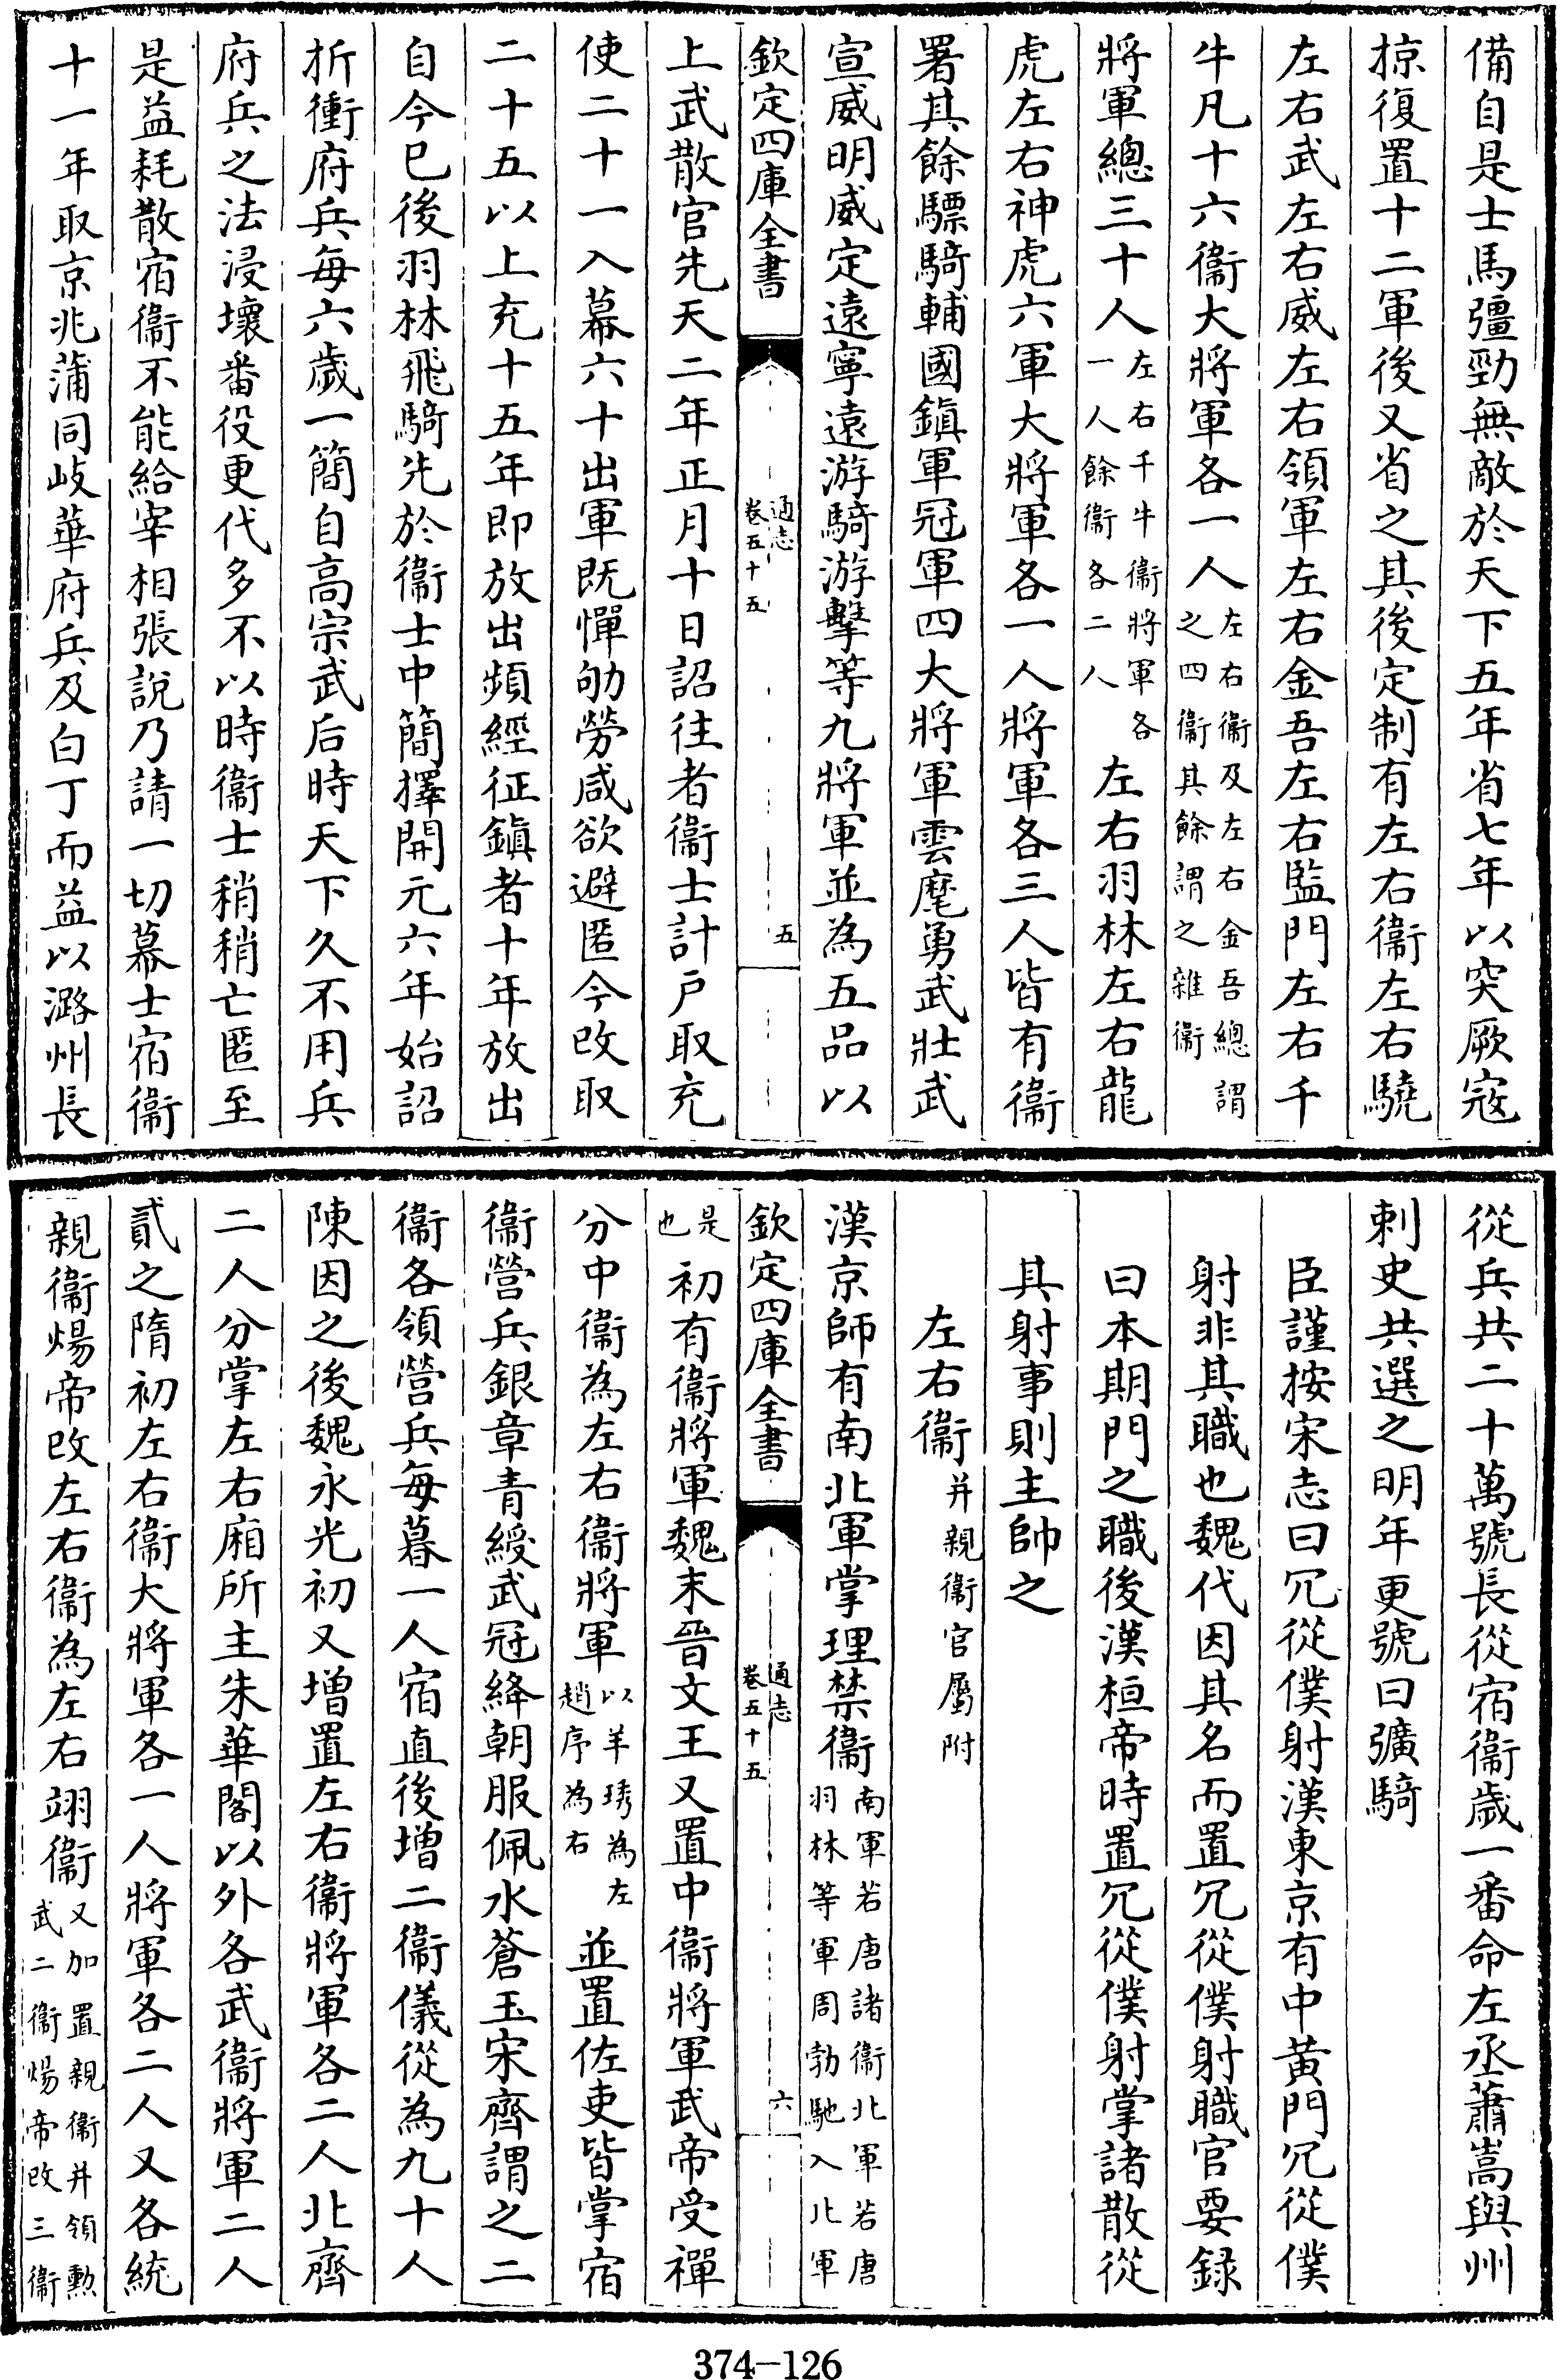 備自是士馬彊勁無敵於天下五年省七年以突厥寇
掠復置十二軍後又省之其後定制有左右衞左右驍
左右武左右威左右領軍左右金吾左右監門左右千
牛凡十六衞大將軍各一人左右衞及左右金吾總謂之四衞其餘謂之雜衞
將軍總三十人左右千牛衞將軍各一人餘衞各二人左右羽林左右龍
虎左右神虎六軍大將軍各一人將軍各三人皆有衞
署其餘驃騎輔國鎮軍冠軍四大將軍雲麾勇武壯武
宣威明威定遠寧遠游騎游擊等九將軍並為五品以
欽定四庫全書
通志
卷五十五
五
上武散官先天二年正月十日詔往者衞士計戶取充
使二十一入募六十出軍既憚劬勞咸欲避匿今改取
二十五以上充十五年即放出頻經征鎮者十年放出
自今已後羽林飛騎先於衞士中簡擇開元六年始詔
折衝府兵每六歲一簡自高宗武后時天下久不用兵
府兵之法浸壞番役更代多不以時衞士稍稍亡匿至
是益耗散宿衞不能給宰相張說乃請一切募士宿衞
十一年取京兆蒲同岐華府兵及白丁而益以潞州長
從兵共二十萬號長從宿衞歲一番命左丞蕭嵩與州
刺史共選之明年更號曰彍騎
臣謹按宋志曰冗從僕射漢東京有中黃門冗從僕
射非其職也魏代因其名而置冗從僕射職官要録
曰本期門之職後漢桓帝時置冗從僕射掌諸散從
其射事則主帥之
左右衞并親衞官屬附
漢京師有南北軍掌理禁衞南軍若唐諸衞北軍若唐羽林等軍周勃馳入北軍
欽定四庫全書
通志
卷五十五
六
是也初有衞將軍魏末晉文王又置中衞將軍武帝受禪
分中衞為左右衞將軍以羊琇為左趙序為右並置佐吏皆掌宿
衞營兵銀章青綬武冠絳朝服佩水蒼玉宋齊謂之二
衞各領營兵每暮一人宿直後增二衞儀從為九十人
陳因之後魏永光初又增置左右衞將軍各二人北齊
二人分掌左右廂所主朱華閣以外各武衞將軍二人
貳之隋初左右衞大將軍各一人將軍各二人又各統
親衞煬帝改左右衞為左右翊衞又加置親衞并領勲武二衞煬帝改三衞
374-126